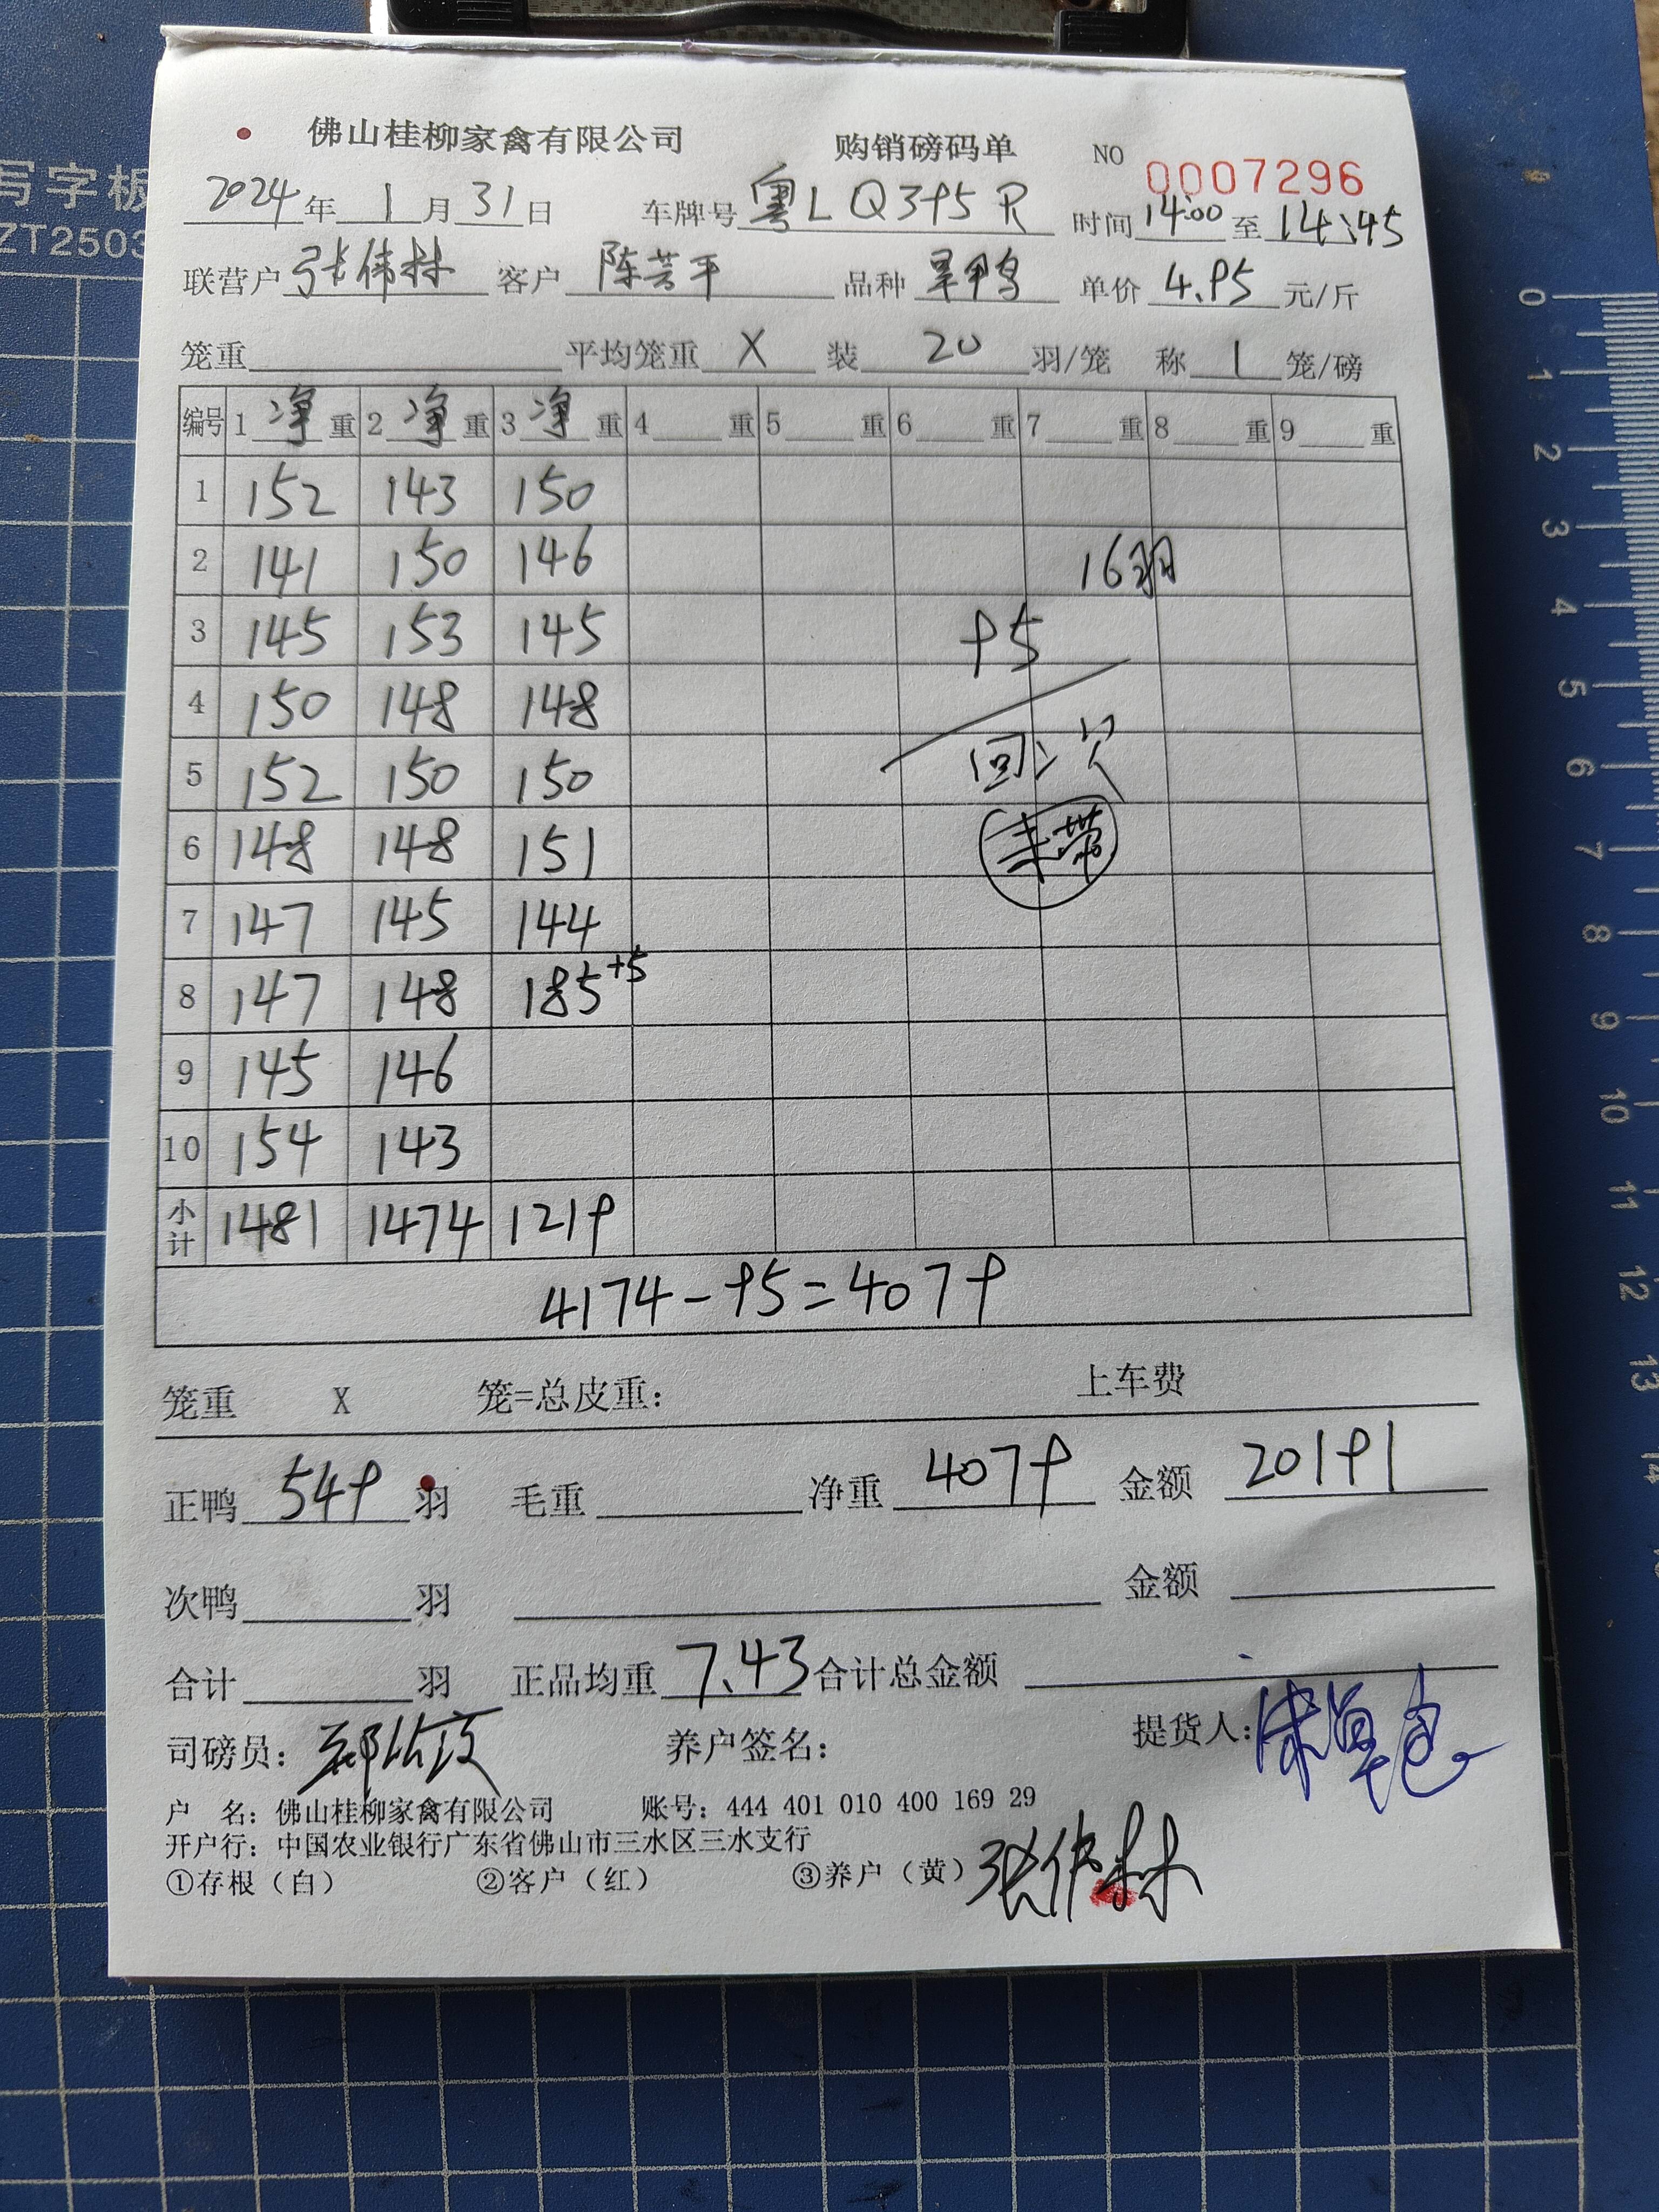 写字板
ZT2503
佛山桂柳家禽有限公司 购销磅码单 NO 0007296
2024年1月31日 车牌号粤LQ395R 时间14:00至14:45
联营户张伟林 客户陈芳平 品种旱鸭 单价4.95元/斤
笼重 平均笼重X 装20羽/笼 称1笼/磅
编号 1净重 2净重 3净重 4重 5重 6重 7重 8重 9重
1 152 143 150
2 141 150 146 16羽
3 145 153 145 95
4 150 148 148
5 152 150 150 回次
6 148 148 151 未带
7 147 145 144
8 147 148 185+5
9 145 146
10 154 143
小计 1481 1474 1219
4174-95=4079
笼重 X 笼=总皮重： 上车费
正鸭549羽 毛重 净重4079 金额20191
次鸭 羽 金额
合计 羽 正品均重7.43 合计总金额
司磅员： 养户签名： 提货人：
户 名：佛山桂柳家禽有限公司 账号：444 401 010 400 169 29
开户行：中国农业银行广东省佛山市三水区三水支行
①存根（白） ②客户（红） ③养户（黄）张伟林
0
1
2
3
4
5
6
7
8
9
10
11
12
13
14